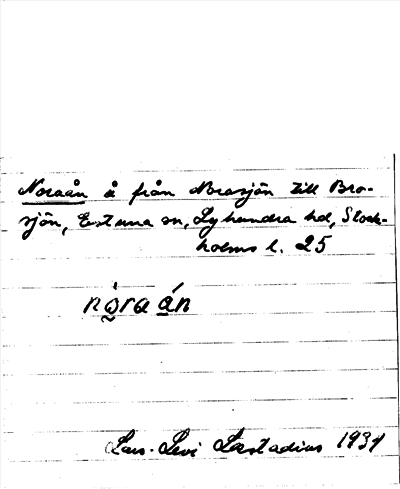 Noraån å från Norasjön till Bro-
sjön, Estuna sn, Lyhundra hd, Stock-
holms l. 25
nò̰ra án
Lars-Levi Læstadius 1934